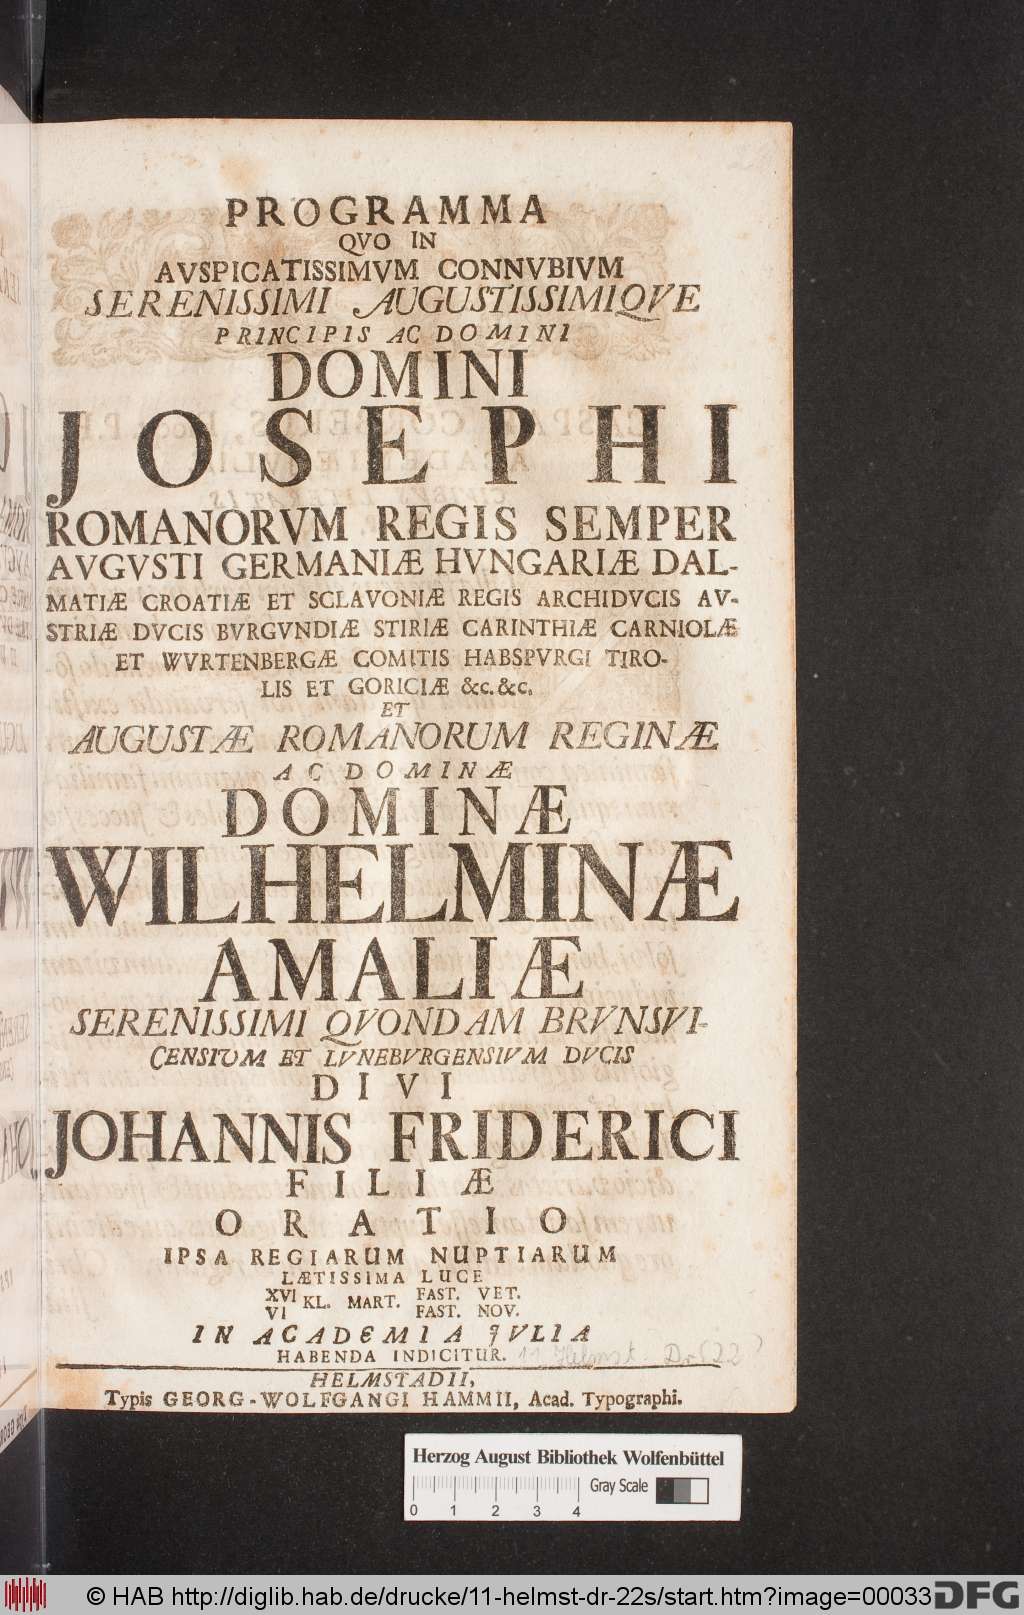 PROGRAMMA
QVO IN
AVSPICATISSIMVM CONNVBIVM
SERENISSIMI AUGUSTISSIMIQVE
PRINCIPIS AC DOMINI
DOMINI
JOSEPHI
ROMANORVM REGIS SEMPER
AVGVSTI GERMANIÆ HVNGARIÆ DAL-
MATIÆ CROATIÆ ET SCLAVONIÆ REGIS ARCHIDVCIS AV-
STRIÆ DVCIS BVRGVNDIÆ STIRIÆ CARINTHIÆ CARNIOLÆ
ET WVRTENBERGÆ COMITIS HABSPVRGI TIRO-
LIS ET GORICIÆ &c. &c.
ET
AUGUSTÆ ROMANORUM REGINÆ
AC DOMINÆ
DOMINÆ
WILHELMINÆ
AMALIÆ
SERENISSIMI QVONDAM BRVNSVI-
CENSIVM ET LVNEBVRGENSIVM DVCIS
DIVI
JOHANNIS FRIDERICI
FILIÆ
ORATIO
IPSA REGIARUM NUPTIARUM
LÆTISSIMA LUCE
XVI KL. MART. FAST. VET.
VI FAST. NOV.
IN ACADEMIA JVLIA
HABENDA INDICITUR. 11 Helmst. Dr (22)
HELMSTADII,
Typis GEORG-WOLFGANGI HAMMII, Acad. Typographi.
Herzog August Bibliothek Wolfenbüttel
Gray Scale
0 1 2 3 4
© HAB http://diglib.hab.de/drucke/11-helmst-dr-22s/start.htm?image=00033
DFG